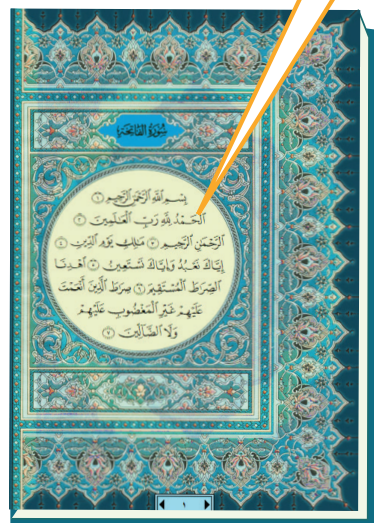 سُورَةُ الفَاتِحَةِ
بِسْمِ اللَّهِ الرَّحْمَٰنِ الرَّحِيمِ ١
الْحَمْدُ لِلَّهِ رَبِّ الْعَالَمِينَ ٢
الرَّحْمَٰنِ الرَّحِيمِ ٣ مَالِكِ يَوْمِ الدِّينِ ٤
إِيَّاكَ نَعْبُدُ وَإِيَّاكَ نَسْتَعِينُ ٥ اهْدِنَا
الصِّرَاطَ الْمُسْتَقِيمَ ٦ صِرَاطَ الَّذِينَ أَنْعَمْتَ
عَلَيْهِمْ غَيْرِ الْمَغْضُوبِ عَلَيْهِمْ
وَلَا الضَّالِّينَ ٧
١